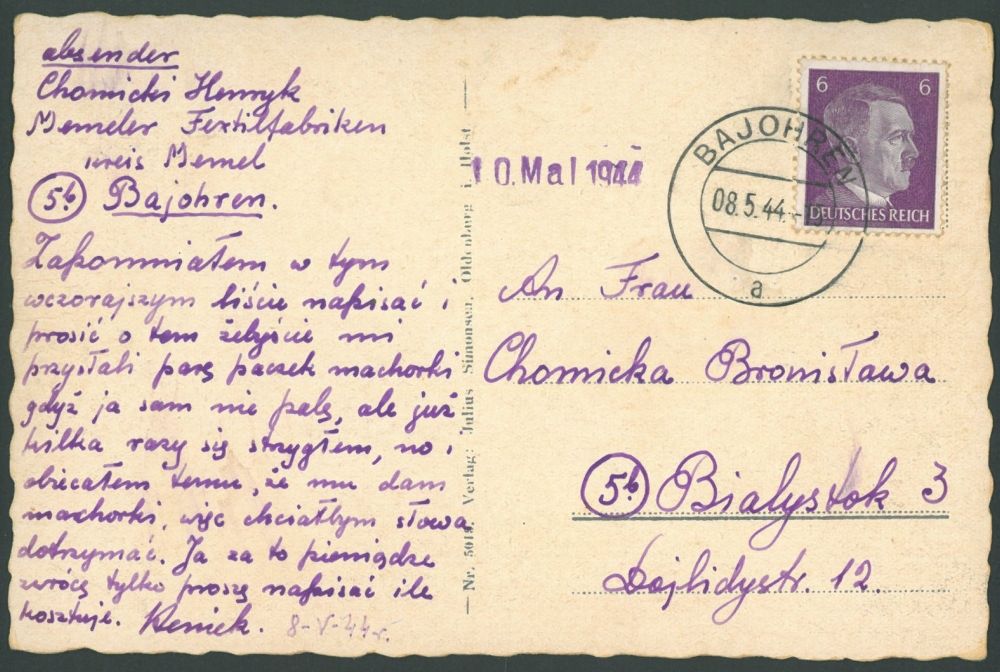 absender
Chomicki Henryk
Memeler Textilfabriken
kreis Memel
5b Bajohren.
Zapomniałem w tym
wczorajszym liście napisać i
prosić o tem żebyście mi
przysłali parę paczek machorki
gdyż ja sam nie palę, ale już
kilka razy się strzygłem, no i
obiecałem temu, że mu dam
machorki, więc chciałbym słowa
dotrzymać. Ja za to pieniądze
zwrócę tylko proszę napisać ile
kosztuje. Heniek. 8-V-44r.
— Nr. 5019. Verlag: Julius Simonsen, Oldenberg i. Holst
10. Mai 1944
BAJOHREN
08.5.44
a
6 6
DEUTSCHES REICH
An Frau
Chomicka Bronisława
5b Bialystok 3
Dojlidystr. 12.